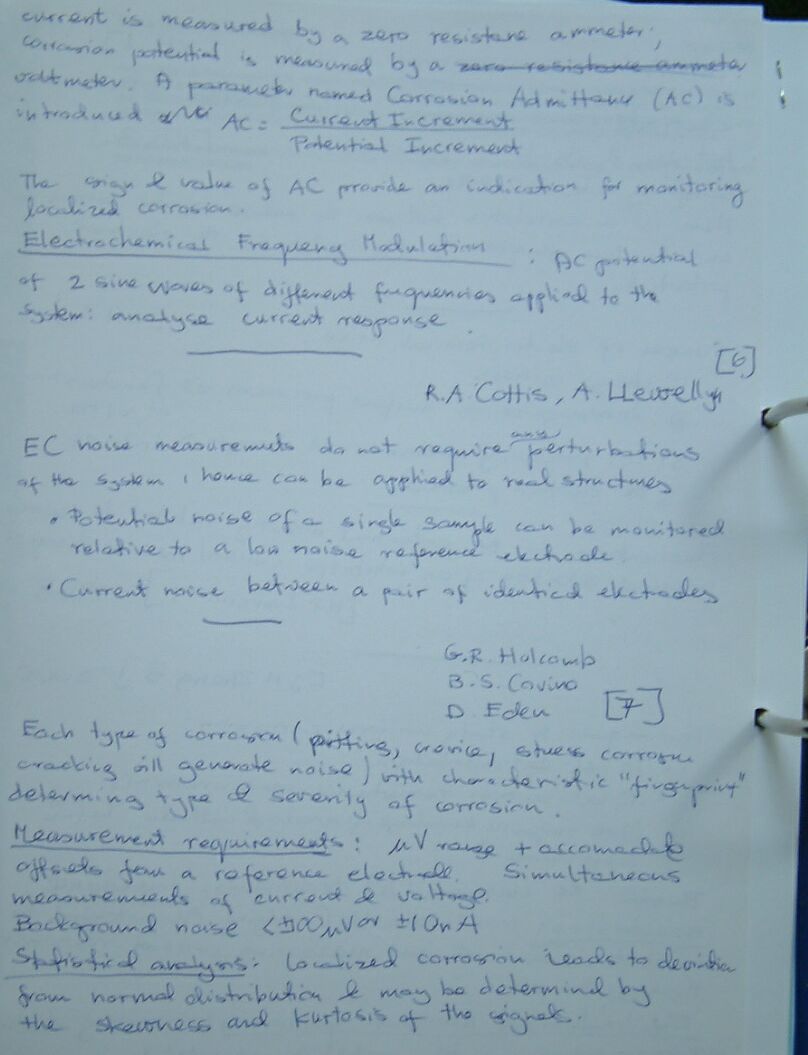 current is measured by a zero resistane ammeter,
corrosion potential is measured by a zero resistance ammeter
voltmeter. A parameter named Corrosion Admittany (AC) is
introduced AC = Current Increment
Potential Increment
The sign & value of AC provide an indication for monitoring
localized corrosion.
Electrochemical Frequeny Modulation : AC potential
of 2 sine waves of different frequencies applied to the
system: analyse current response
[6]
R.A. Cottis, A. Llewellyn
any
EC noise measuremuts do not require perturbations
of the system, hence can be applied to real structures
• Potential noise of a single sample can be monitored
relative to a low noise reference electrode.
• Current noise between a pair of identical electrodes
G.R. Holcomb
B.S. Covino
D. Eden [7]
Each type of corrosion (pitting, crevice, stress corrosion
cracking will generate noise) with characteristic "fingerprint"
determing type & severity of corrosion.
Measurement requirements: µV range + accomodate
offsets from a reference electrode. Simultaneous
measurements of current & voltage.
Background noise < µV or ±10nA
Statistical analysis: Localized corrosion leads to deviation
from normal distribution & may be determind by
the skewness and kurtosis of the signals.